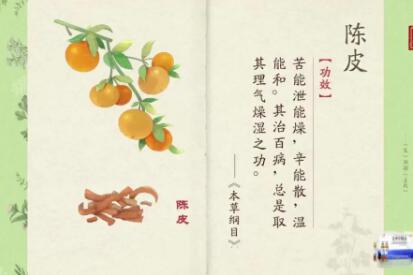 陈皮
【功效】
苦能泄能燥，辛能散，温
能和。其治百病，总是取
其理气燥湿之功。
——《本草纲目》
陈皮